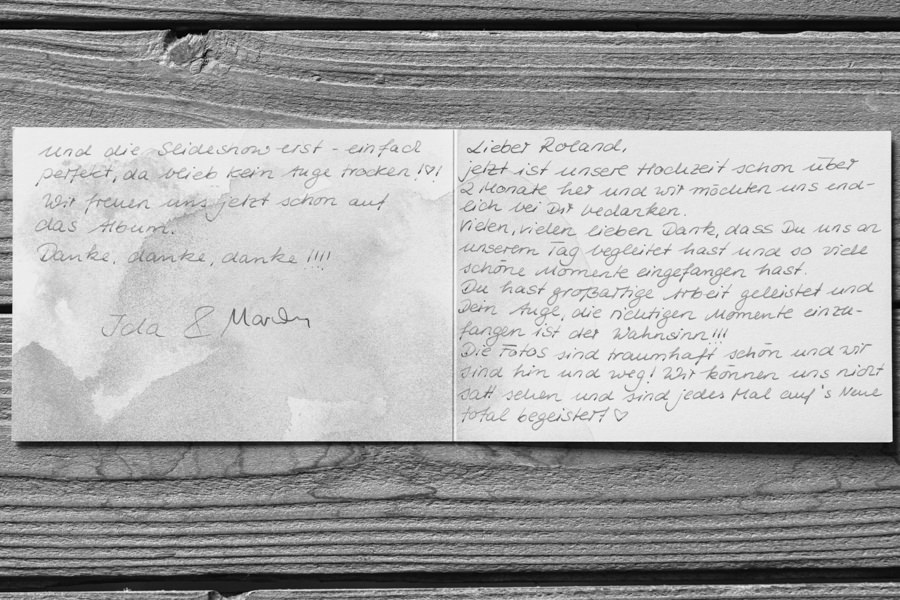 Lieber Roland,
jetzt ist unsere Hochzeit schon über
2 Monate her und wir möchten uns end-
lich bei Dir bedanken.
Vielen, vielen lieben Dank, dass Du uns an
unserem Tag begleitet hast und so viele
schöne Momente eingefangen hast.
Du hast großartige Arbeit geleistet und
Dein Auge, die richtigen Momente einzu-
fangen ist der Wahnsinn!!!
Die Fotos sind traumhaft schön und wir
sind hin und weg! Wir können uns nicht
satt sehen und sind jedes Mal auf's Neue
total begeistert ♡
und die Slideshow erst - einfach
perfekt, da blieb kein Auge trocken !♡!
Wir freuen uns jetzt schon auf
das Album.
Danke, danke, danke !!!!
&